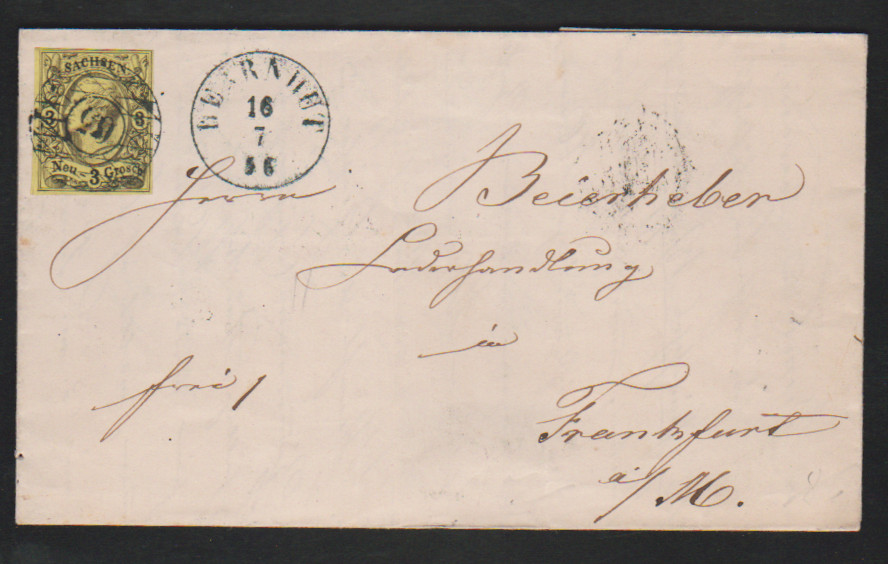 SACHSEN
3 3
Neu - 3 Grosch
HERRNHUT
16
7
56
Herrn Beierheber
Lederhandlung
in
frei
Frankfurt
a/M.